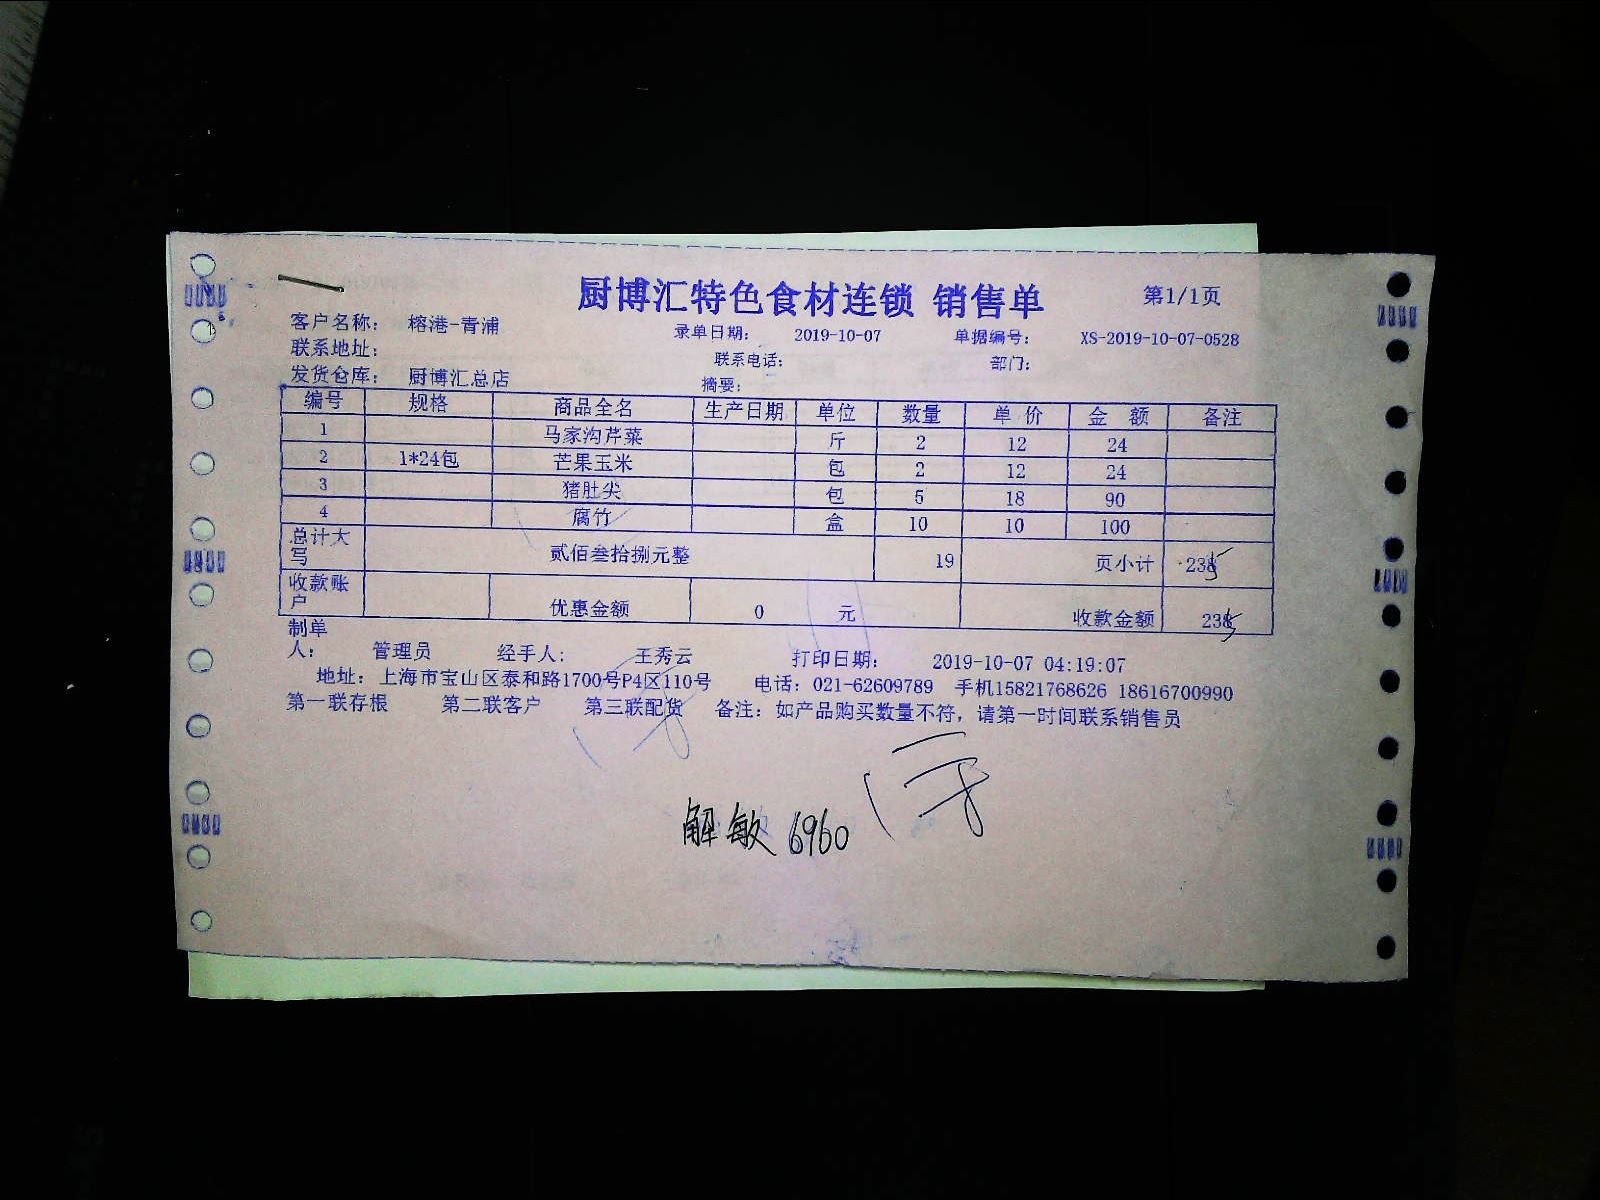 厨博汇特色食材连锁 销售单 第1/1页
客户名称： 榕港-青浦 录单日期： 2019-10-07 单据编号： XS-2019-10-07-0528
联系地址： 联系电话： 部门：
发货仓库： 厨博汇总店 摘要：
编号 规格 商品全名 生产日期 单位 数量 单 价 金 额 备注
1 马家沟芹菜 斤 2 12 24
2 1*24包 芒果玉米 包 2 12 24
3 猪肚尖 包 5 18 90
4 腐竹 盒 10 10 100
总计大写 贰佰叁拾捌元整 19 页小计 238
收款账户 优惠金额 0 元 收款金额 238
制单人： 管理员 经手人： 王秀云 打印日期： 2019-10-07 04:19:07
地址：上海市宝山区泰和路1700号P4区110号 电话：021-62609789 手机15821768626 18616700990
第一联存根 第二联客户 第三联配货 备注：如产品购买数量不符，请第一时间联系销售员
解敏 6960